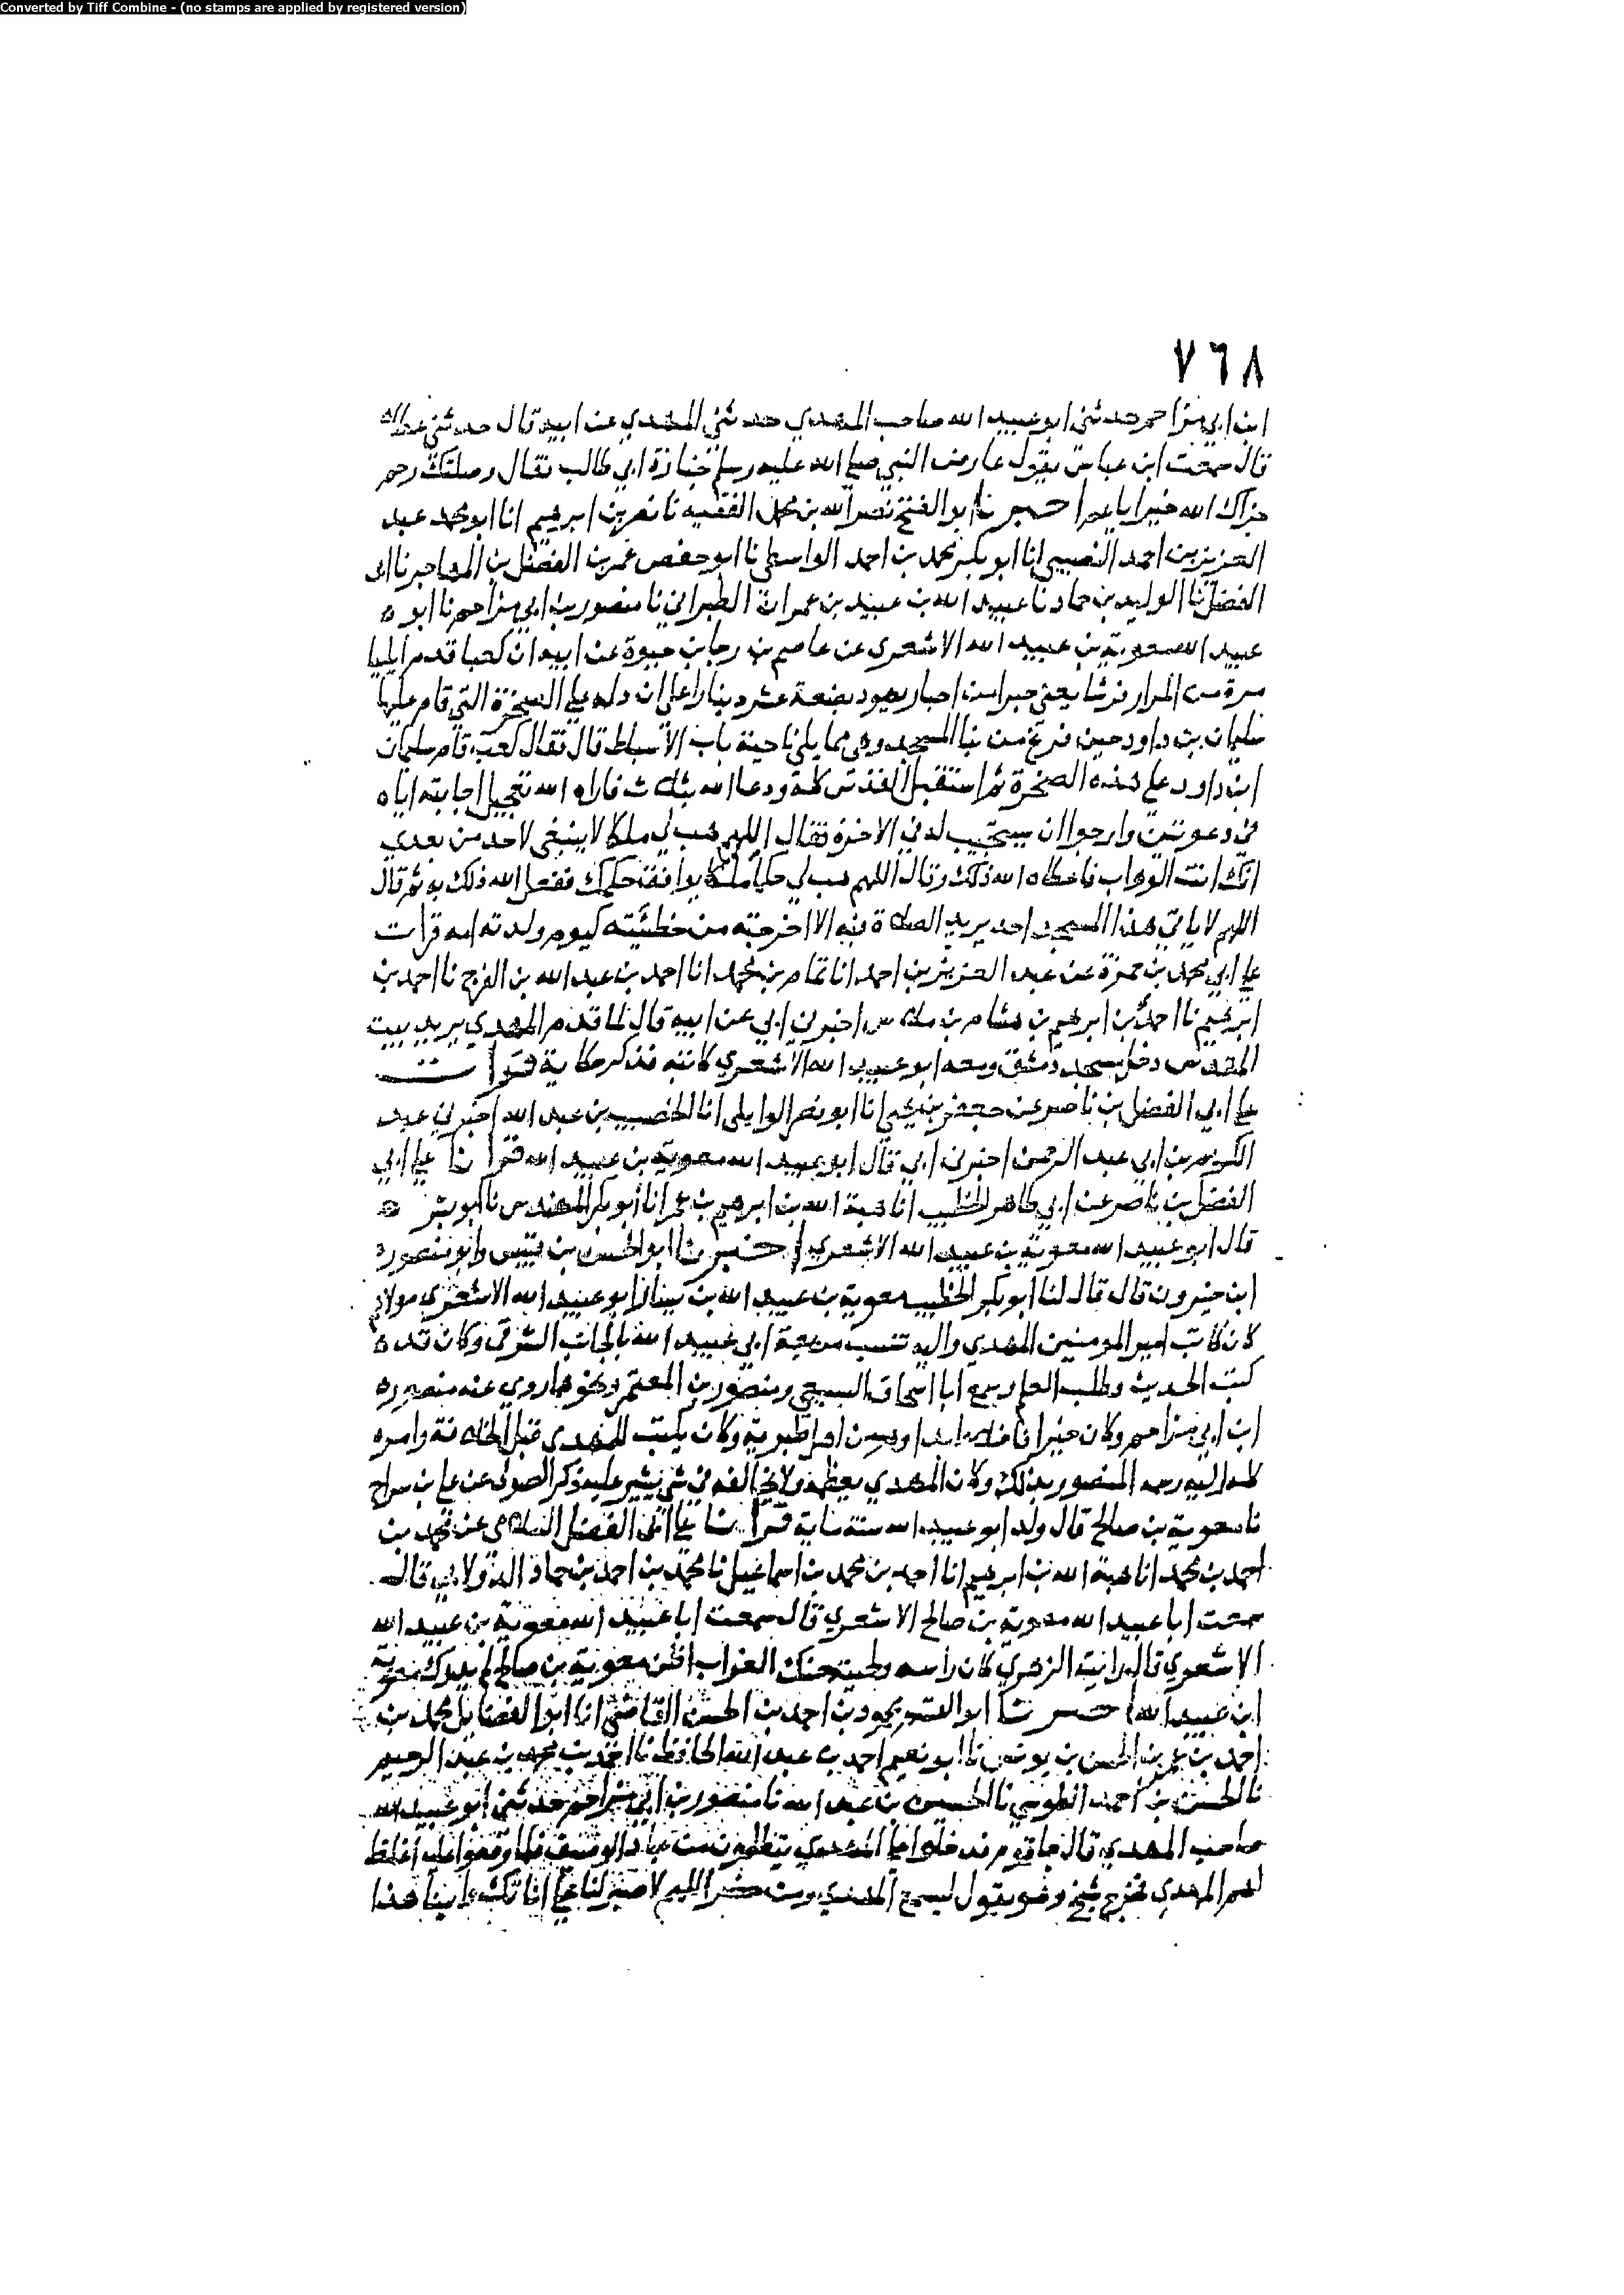 Converted by Tiff Combine - (no stamps are applied by registered version)
٧٦٨
ابن ابي مزاحم حدثني ابو عبيد الله صاحب المهدي حدثني المهدي عن ابيه قال حدثني عطاء
قال سمعت ابن عباس يقول عارض النبي صلى الله عليه وسلم جنازة ابي طالب فقال وصلتك رحم
جزاك الله خيرا يا عم اخبرنا ابو الفتح نصر الله بن محمد الفقيه نا نصر بن ابرهيم انا ابو محمد عبد
العزيز بن احمد النصيبي انا ابو بكر محمد بن احمد الواسطي نا ابو حفص عمر بن الفضل بن المهاجر نا ابي
الفضل نا الوليد بن حماد نا عبيد الله بن عبيد بن عمران الطبراني نا منصور بن ابي مزاحم نا ابو
عبيد الله معوية بن عبيد الله الاشعري عن عاصم بن رجا بن حيوة عن ابيه ان كعبا قدم ايليا
مرة من المرار فرشا يعني حبرا من احبار يهود بضعة عشر دينارا على ان دله على الصخرة التي قام عليها
سليمان بن داود حين فرغ من بنا المسجد وهي مما يلي ناحية باب الاسباط قال فقال كعب قام سليمان
ابن داود على هذه الصخرة ثم استقبل القدس كله ودعا الله بثلاث فاراه الله تعجيل اجابته اياه
في دعوتين وارجوا ان يستجيب له في الاخرة فقال اللهم هب لي ملكا لا ينبغي لاحد من بعدي
انك انت الوهاب فاعطاه الله ذلك وقال اللهم هب لي حكما وملكا يوافق حكمك ففعل الله ذلك به ثم قال
اللهم لا ياتي هذا المسجد احد يريد الصلاة فيه الا اخرجته من خطئيته كيوم ولدته امه قرات
على ابي محمد بن حمزة عن عبد العزيز بن احمد انا تمام بن محمد انا احمد بن عبد الله بن الفرج نا احمد بن
ابرهيم نا احمد بن ابرهيم بن هشام بن ملاس اخبرني ابي عن ابيه قال لما قدم المهدي يريد بيت
المقدس دخل مسجد دمشق ومعه ابو عبيد الله الاشعري كاتبه فذكر حكاية قرات
على ابي الفضل بن ناصر عن جعفر بن يحيى انا ابو نصر الوايلي انا الخصيب بن عبد الله اخبرني عبد
الكريم بن ابي عبد الرحمن اخبرني ابي قال ابو عبيد الله معوية بن عبيد الله قرانا على ابي
الفضل بن ناصر عن ابي طاهر الخطيب انا هبة الله بن ابرهيم بن عمر انا ابو بكر المهندس نا ابو بشر
قال ابو عبيد الله معوية بن عبيد الله الاشعري اخبرنا ابو الحسن بن قبيس وابو منصور
ابن خيرون قال قال لنا ابو بكر الخطيب معوية بن عبيد الله بن يسار ابو عبيد الله الاشعري مولاهم
كان كاتب امير المومنين المهدي واليه تنسب مربعة ابي عبيد الله بالجانب الشرقي وكان قد
كتب الحديث وطلب العلم وسمع ابا اسحاق السبيعي ومنصور بن المعتمر ونحوهما روى عنه منصور
ابن ابي مزاحم وكان خيرا فاضلا عابدا وهو من اهل طبرية وكان يكتب للمهدي قبل الخلافة وامره
كله اليه وصله المنصور بذلك وكان المهدي يعظمه ولا يخالفه في شي يشير عليه ذكر الصولي عن علي بن سراج
نا معوية بن صالح قال ولد ابو عبيد الله سنة ماية قرانا على ابي الفضل السلامي عن محمد بن
احمد بن محمد انا هبة الله بن ابرهيم انا احمد بن محمد بن اسماعيل نا محمد بن احمد بن حماد الدولابي قال
سمعت ابا عبيد الله معوية بن صالح الاشعري قال سمعت ابا عبيد الله معوية بن عبيد الله
الاشعري قال رايت الزهري كان راسه ولحيته حنك الغراب اظن معوية بن صالح لم يدرك معوية
ابن عبيد الله اخبرنا ابو القسم محمود بن احمد بن الحسن القاضي انا ابو الفضايل محمد بن
احمد بن عمر بن الحسن بن يونس نا ابو نعيم احمد بن عبد الله الحافظ نا احمد بن محمد بن عبد الرحيم
نا الحسن بن احمد الطوسي نا الحسين بن عبد الله نا منصور بن ابي مزاحم حدثني ابو عبيد الله
صاحب المهدي قال جا قوم فدخلوا على المهدي يتظلمون من فلما وقفوا عليه اغلظ
لهم المهدي فخرج شيخ وهو يقول ليسمع المهدي ومن حضر اللهم لا صبر لنا على اناتك هذا